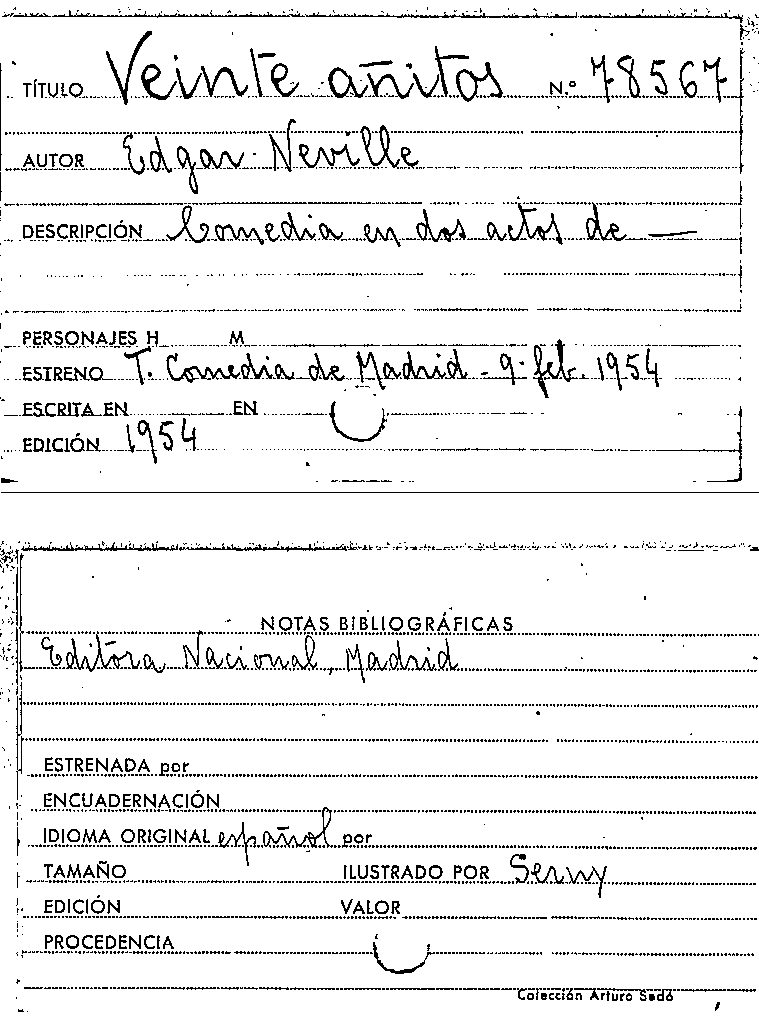 TÍTULO Veinte añitos N.° 78567
AUTOR Edgar Neville
DESCRIPCIÓN Comedia en dos actos de —
PERSONAJES H M
ESTRENO T. Comedia de Madrid - 9 - feb. 1954
ESCRITA EN EN
EDICIÓN 1954
NOTAS BIBLIOGRÁFICAS
Editora Nacional, Madrid
ESTRENADA por
ENCUADERNACIÓN
IDIOMA ORIGINAL español por
TAMAÑO ILUSTRADO POR Serny
EDICIÓN VALOR
PROCEDENCIA
Colección Arturo Sedó